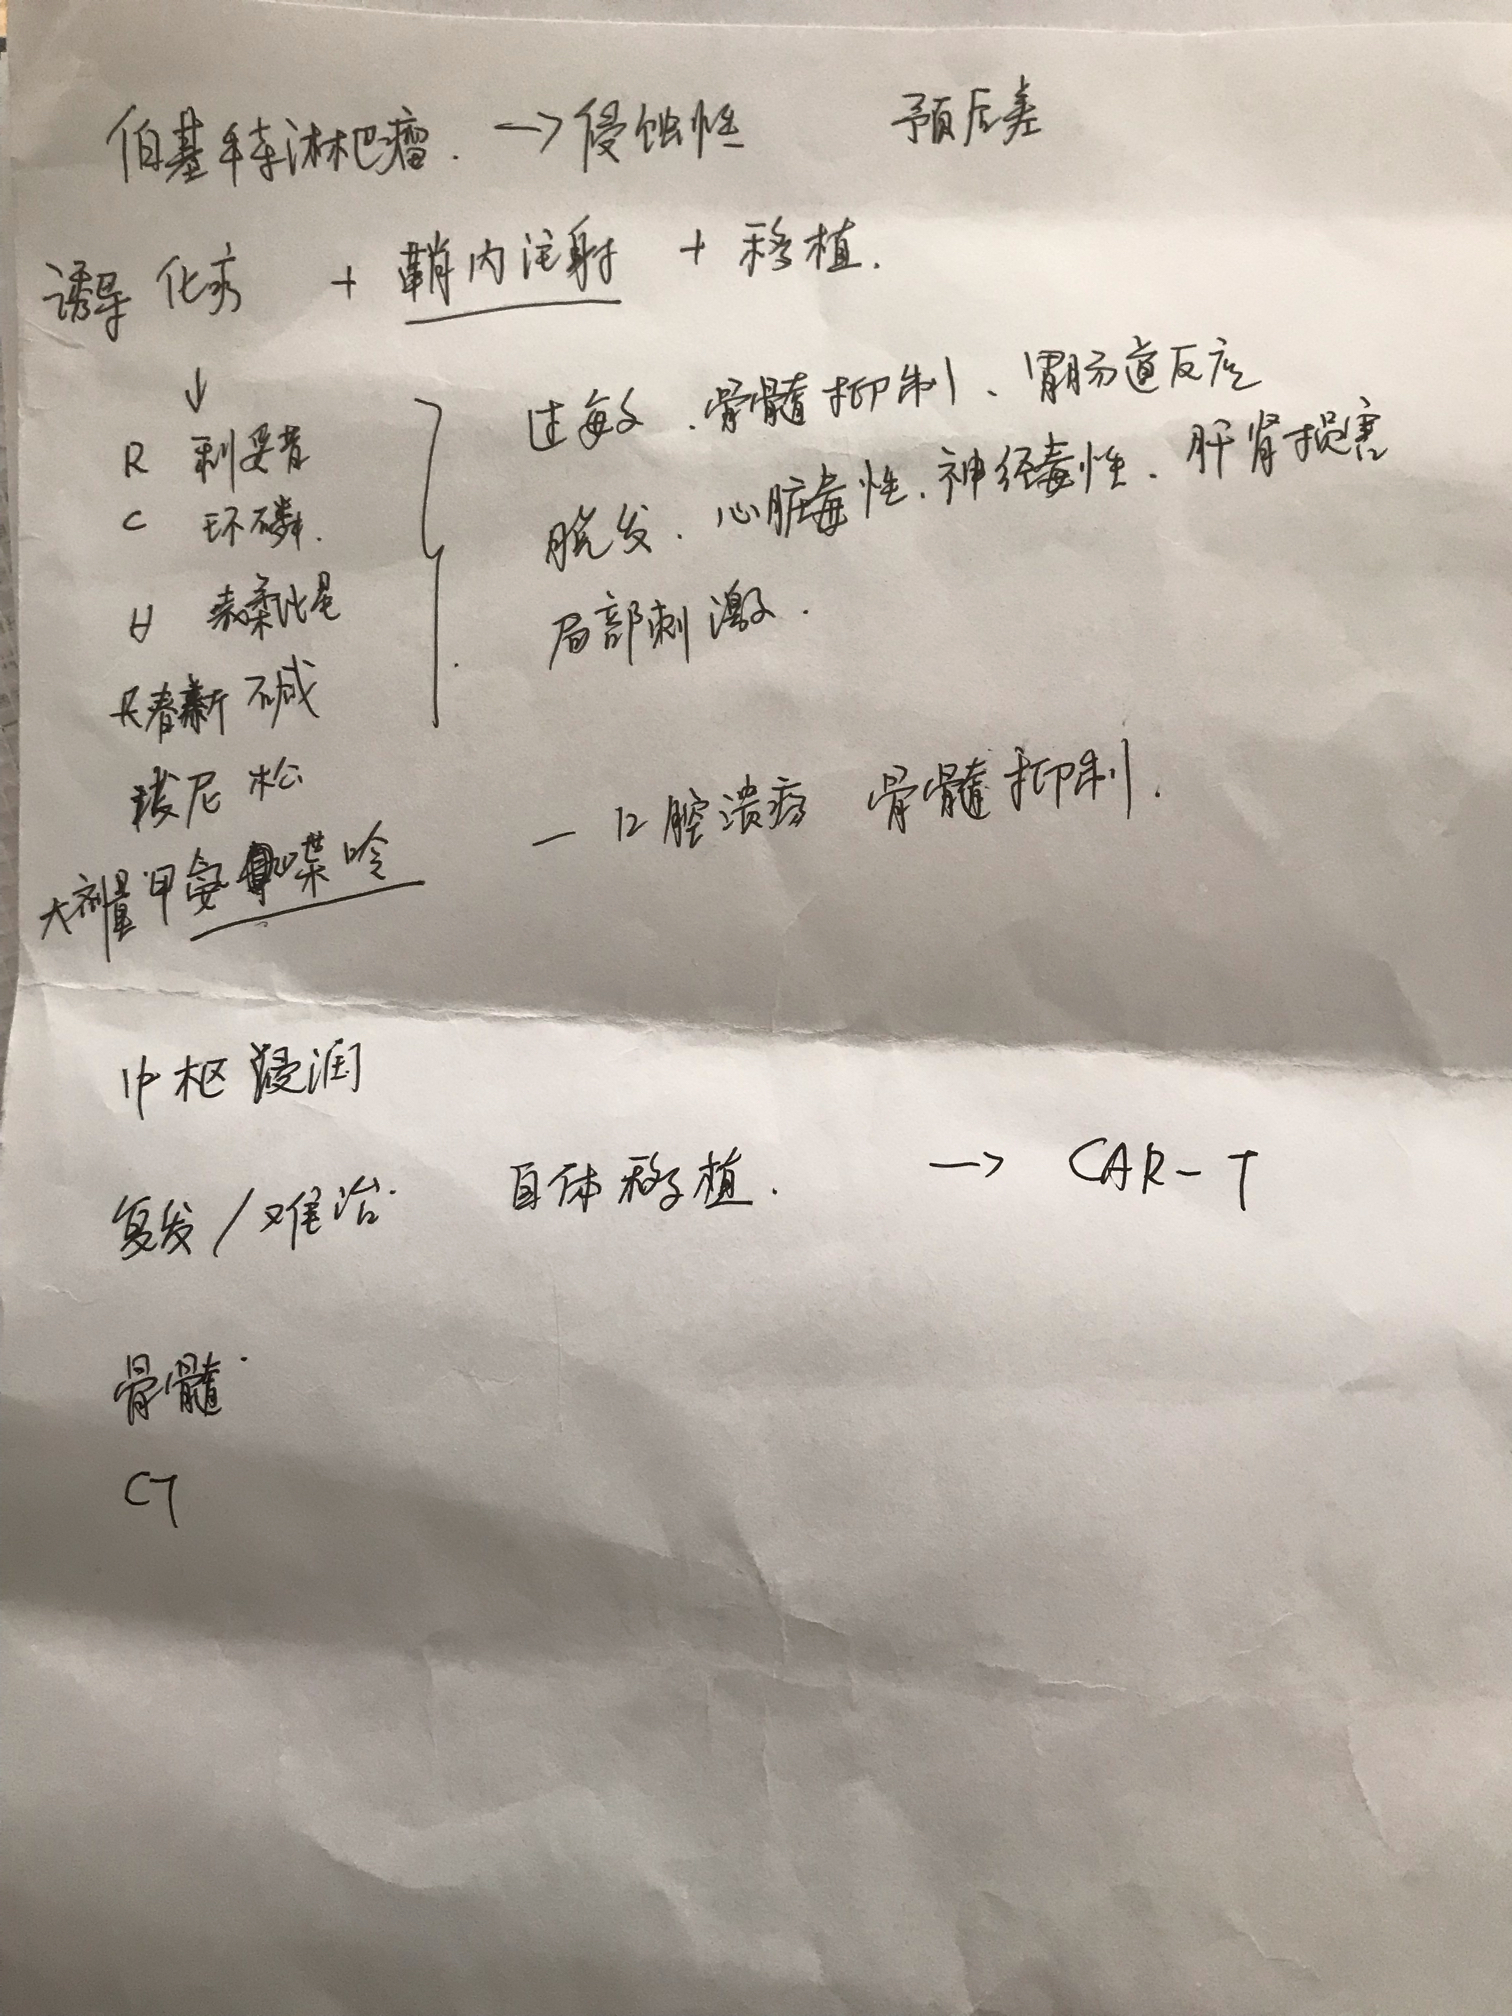 伯基特淋巴瘤. → 侵蚀性 预后差
诱导化疗 + 鞘内注射 + 移植.
↓
R 利妥昔
C 环磷.
H 柔比星
长春新碱
泼尼松
大剂量甲氨喋呤
过敏、骨髓抑制、胃肠道反应
脱发、心脏毒性、神经毒性、肝肾损害
局部刺激.
— 口腔溃疡 骨髓抑制.
中枢浸润
复发/难治. 自体移植. → CAR-T
骨髓.
CT